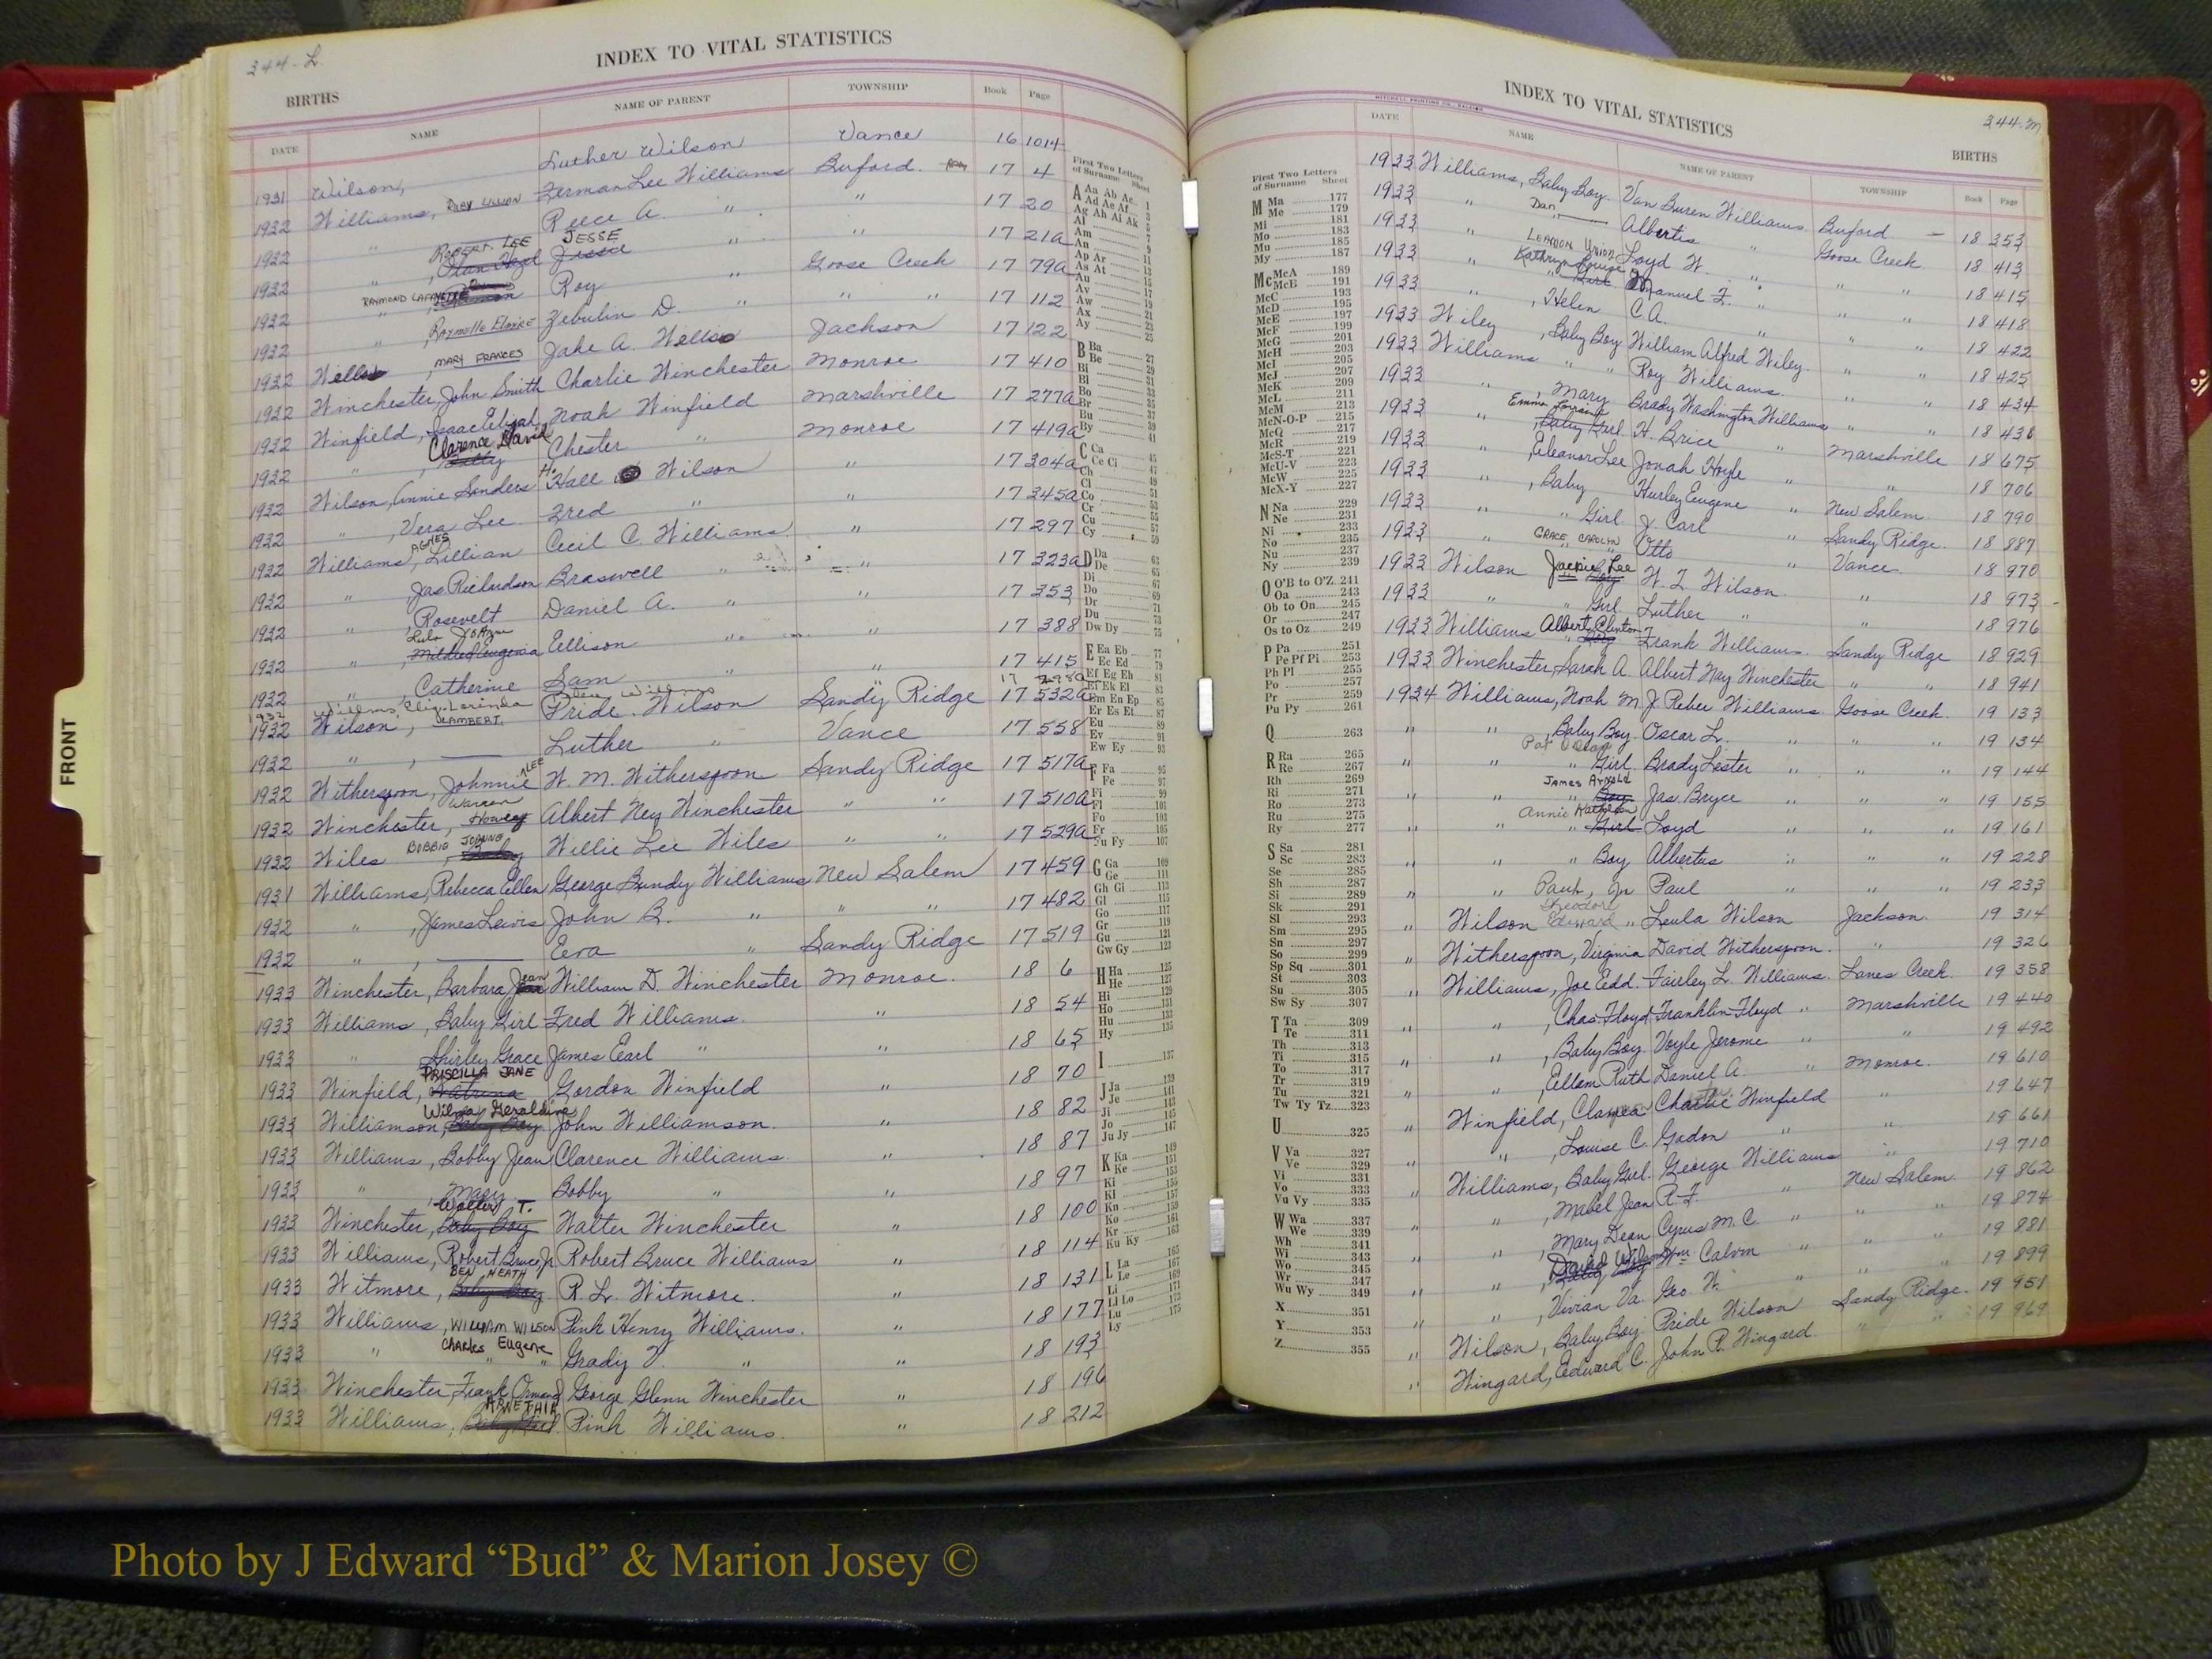 344-L
INDEX TO VITAL STATISTICS
BIRTHS
DATE NAME NAME OF PARENT TOWNSHIP Book Page
1931 Wilson, Luther Wilson Vance 16 1014
1932 Williams, RUBY LILLIAN Furman Lee Williams Buford 17 4
1932 " Reece A. " " 17 20
1932 " ROBERT LEE JESSE " " 17 21a
1932 RAYMOND LAFAYETTE Roy " Goose Creek 17 79a
1932 " , Raymelle Elaine Zebulin D. " " " 17 112
1932 Wells, MARY FRANCES Jake A. Wells Jackson 17 122
1932 Winchester, John Smith Charlie Winchester Monroe 17 410
1932 Winfield, Isaac Elijah Noah Winfield Marshville 17 277a
1932 " , Clarence David Chester " Monroe 17 419a
1932 Wilson, Annie Sanders H. Hall Wilson " 17 304a
1932 " , Vera Lee Fred " " 17 345a
1932 Williams, AGNES Lillian Cecil C. Williams " 17 297
1932 " , Jas Richardson Braswell " " 17 323a
1932 " , Rosevelt Daniel A. " " 17 353
1932 " , Mildred Eugenia Ellison " " 17 388
1932 " , Catherine Sam " " 17 415
1932 Wilson, LAMBERT. Pride Wilson Sandy Ridge 17 532a
1932 " , Luther " Vance 17 558
1932 Witherspoon, Johnnie LEE W. M. Witherspoon Sandy Ridge 17 517a
1932 Winchester, Warren Albert Ney Winchester " " 17 510a
1932 Wiles BOBBIE JOANNE Willie Lee Wiles " " 17 529a
1931 Williams, Rebecca Ellen George Bundy Williams New Salem 17 459
1932 " , James Lewis John B. " " " 17 482
1932 " , Eva " Sandy Ridge 17 519
1933 Winchester, Barbara Jean William D. Winchester Monroe 18 6
1933 Williams, Baby Girl Fred Williams " 18 54
1933 " Shirley Grace James Earl " " 18 65
1933 Winfield, PRISCILLA JANE Gordon Winfield " 18 70
1933 Williamson, Wilma Geraldine Baby Boy John Williamson " 18 82
1933 Williams, Bobby Jean Clarence Williams " 18 87
1933 " , Mary Bobby " " 18 97
1933 Winchester, Walter T. Baby Boy Walter Winchester " 18 100
1933 Williams, Robert Bruce Jr Robert Bruce Williams " 18 114
1933 Witmore, BEN HEATH Baby Boy R. L. Witmore " 18 131
1933 Williams, WILLIAM WILSON Pink Henry Williams " 18 177
1933 " Charles Eugene Grady V. " " 18 193
1933 Winchester Frank Ormand George Glenn Winchester " 18 196
1933 Williams, ARNETHIA Baby Girl Pink Williams " 18 212
First Two Letters of Surname Sheet
A Aa Ab Ac 1
Ad Ae Af 3
Ag Ah Ai Ak 5
Al 7
Am 9
An 11
Ap Ar 13
As At 15
Au 17
Av 19
Aw 21
Ax 23
Ay 25
B Ba 27
Be 29
Bi 31
Bl 33
Bo 35
Br 37
Bu 39
By 41
C Ca 45
Ce Ci 47
Ch 49
Cl 51
Co 53
Cr 55
Cu 57
Cy 59
D Da 63
De 65
Di 67
Do 69
Dr 71
Du 73
Dw Dy 75
E Ea Eb 77
Ec Ed 79
Ef Eg Eh 81
Ei Ek El 83
Em En Ep 85
Er Es Et 87
Eu 89
Ev 91
Ew Ey 93
F Fa 95
Fe 97
Fi 99
Fl 101
Fo 103
Fr 105
Fu Fy 107
G Ga 109
Ge 111
Gh Gi 113
Gl 115
Go 117
Gr 119
Gu 121
Gw Gy 123
H Ha 125
He 129
Hi 131
Ho 133
Hu 135
Hy
I 137
J Ja 139
Je 141
Ji 143
Jo 145
Ju Jy 147
K Ka 149
Ke 151
Ki 153
Kl 155
Kn 157
Ko 159
Kr 161
Ku Ky 163
L La 165
Le 167
Li 169
Ll Lo 171
Lu 173
Ly 175
344-M
INDEX TO VITAL STATISTICS
BIRTHS
MITCHELL PRINTING CO., RALEIGH
DATE NAME NAME OF PARENT TOWNSHIP Book Page
First Two Letters of Surname Sheet
M Ma 177
Me 179
Mi 181
Mo 183
Mu 185
My 187
Mc McA 189
McB 191
McC 193
McD 195
McE 197
McF 199
McG 201
McH 203
McI 205
McJ 207
McK 209
McL 211
McM 213
McN-O-P 215
McQ 217
McR 219
McS-T 221
McU-V 223
McW 225
McX-Y 227
N Na 229
Ne 231
Ni 233
No 235
Nu 237
Ny 239
O O'B to O'Z 241
Oa 243
Ob to On 245
Or 247
Os to Oz 249
P Pa 251
Pe Pf Pi 253
Ph Pl 255
Po 257
Pr 259
Pu Py 261
Q 263
R Ra 265
Re 267
Rh 269
Ri 271
Ro 273
Ru 275
Ry 277
S Sa 281
Sc 283
Se 285
Sh 287
Si 289
Sk 291
Sl 293
Sm 295
Sn 297
So 299
Sp Sq 301
St 303
Su 305
Sw Sy 307
T Ta 309
Te 311
Th 313
Ti 315
To 317
Tr 319
Tu 321
Tw Ty Tz 323
U 325
V Va 327
Ve 329
Vi 331
Vo 333
Vu Vy 335
W Wa 337
We 339
Wh 341
Wi 343
Wo 345
Wr 347
Wu Wy 349
X 351
Y 353
Z 355
1933 Williams, Baby Boy Van Buren Williams Buford 18 353
1933 " Dan Albertis " Goose Creek 18 413
1933 " LEAMON Union Loyd W. " " " 18 415
1933 " Kathryn Louise Girl Manuel F. " " " 18 418
1933 " , Helen C.A. " " " 18 422
1933 Wiley , Baby Boy William Alfred Wiley " " 18 425
1933 Williams " " Roy Williams " " 18 434
1933 " , Mary Brady Washington Williams " " 18 436
1933 " Emma Lorraine Baby Girl H. Brice " Marshville 18 675
1933 " , Eleanor Lee Jonah Hoyle " " 18 706
1933 " , Baby Hurley Eugene " New Salem 18 790
1933 " " Girl J. Carl " Sandy Ridge 18 887
1933 " GRACE CAROLYN Otto " Vance 18 970
1933 Wilson Jackie Lee W. T. Wilson " 18 973
1933 " " Girl Luther " " 18 976
1933 Williams Albert Clinton Frank Williams Sandy Ridge 18 929
1933 Winchester, Sarah A. Albert Nay Winchester " " 18 941
1934 Williams, Noah M. J. Reber Williams Goose Creek 19 133
" " , Baby Boy Oscar L. " " " 19 134
" " " Girl Brady Lester " " " 19 144
" " JAMES ARNOLD Boy Jas. Bryce " " " 19 155
" " Annie Kathleen Girl Loyd " " " 19 161
" " " Boy Albertus " " " 19 228
" " Paul, Jr Paul " " " 19 233
" Wilson Theodore Edward " Leula Wilson Jackson 19 314
" Witherspoon, Virginia David Witherspoon " 19 326
" Williams, Joe Edd. Fairley L. Williams Lanes Creek 19 358
" " , Chas. Floyd Franklin Floyd " Marshville 19 440
" " , Baby Boy Voyle Jerome " " 19 492
" " , Ellam Ruth Daniel A. " Monroe 19 610
" Winfield, Charlie Winfield " 19 647
" " , Louise C. Gadon " " 19 661
" Williams, Baby Girl George Williams " 19 710
" " , Mabel Jean R. F. " New Salem 19 862
" " , Mary Dean Cyrus M. C. " " " 19 874
" " , David Wm. Calvin " " " 19 881
" " , Vivian Va. Geo. W. " " " 19 899
" Wilson, Baby Boy Pride Wilson Sandy Ridge 19 951
" Wingard, Edward C. John R. Wingard " " 19 969
FRONT
Photo by J Edward “Bud” & Marion Josey ©